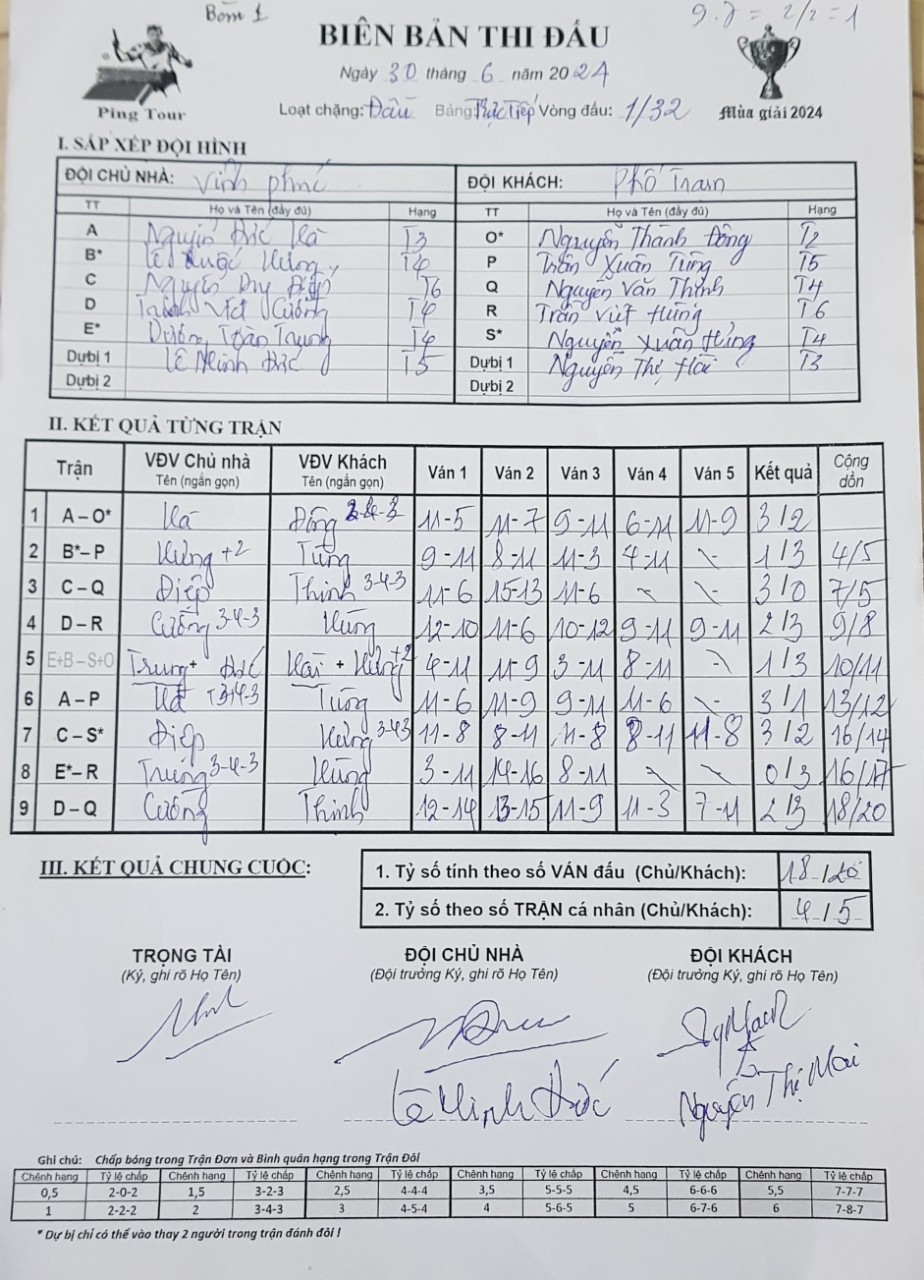 Bom 1
9.7 = 2/2 = 1
BIÊN BẢN THI ĐẤU
Ngày 30 tháng 6 năm 2024
Ping Tour
Loạt chặng: Đầu Bảng Trực Tiếp Vòng đấu: 1/32
Mùa giải 2024
I. SẮP XẾP ĐỘI HÌNH
ĐỘI CHỦ NHÀ: Vĩnh phúc ĐỘI KHÁCH: Phố Tram
TT Họ và Tên (đầy đủ) Hạng TT Họ và Tên (đầy đủ) Hạng
A Nguyễn Đức Hà T3 O* Nguyễn Thành Đông T2
B* Lê Quốc Hưng T4 P Trần Xuân Tùng T5
C Nguyễn Duy Điệp T6 Q Nguyễn Văn Thịnh T4
D Trịnh Việt Cường T4 R Trần Việt Hùng T6
E* Dương Toàn Trung T4 S* Nguyễn Xuân Hưng T4
Dựbị 1 Lê Minh Đức T5 Dựbị 1 Nguyễn Thị Hài T3
Dựbị 2 Dựbị 2
II. KẾT QUẢ TỪNG TRẬN
Trận VĐV Chủ nhà VĐV Khách Ván 1 Ván 2 Ván 3 Ván 4 Ván 5 Kết quả Cộng dồn
Tên (ngắn gọn) Tên (ngắn gọn)
1 A – O* Hà Đông 3-4-3 11-5 11-7 9-11 6-11 11-9 3/2
2 B*– P Hưng +2 Tùng 9-11 8-11 11-3 4-11 \- 1/3 4/5
3 C – Q Điệp Thịnh 3-4-3 11-6 15-13 11-6 \- \- 3/0 7/5
4 D – R Cường 3-4-3 Hùng 12-10 11-6 10-12 9-11 9-11 2/3 9/8
5 E+B – S+O Trung+ Đức Hài + Hưng+2 4-11 11-9 3-11 8-11 \- 1/3 10/11
6 A – P Hà +3-4-3 Tùng 11-6 11-9 9-11 11-6 \- 3/1 13/12
7 C – S* Điệp Hưng 3-4-3 11-8 8-11 11-8 8-11 11-8 3/2 16/14
8 E*– R Trung 3-4-3 Hùng 3-11 14-16 8-11 \- \- 0/3 16/17
9 D – Q Cường Thịnh 12-14 13-15 11-9 11-3 7-11 2/3 18/20
III. KẾT QUẢ CHUNG CUỘC:
1. Tỷ số tính theo số VÁN đấu (Chủ/Khách): 18/20
2. Tỷ số theo số TRẬN cá nhân (Chủ/Khách): 4/5
TRỌNG TÀI ĐỘI CHỦ NHÀ ĐỘI KHÁCH
(Ký, ghi rõ Họ Tên) (Đội trưởng Ký, ghi rõ Họ Tên) (Đội trưởng Ký, ghi rõ Họ Tên)
Lê Minh Đức Nguyễn Thị Mai
Ghi chú: Chấp bóng trong Trận Đơn và Bình quân hạng trong Trận Đôi
Chênh hạng Tỷ lệ chấp Chênh hạng Tỷ lệ chấp Chênh hạng Tỷ lệ chấp Chênh hạng Tỷ lệ chấp Chênh hạng Tỷ lệ chấp Chênh hạng Tỷ lệ chấp
0,5 2-0-2 1,5 3-2-3 2,5 4-4-4 3,5 5-5-5 4,5 6-6-6 5,5 7-7-7
1 2-2-2 2 3-4-3 3 4-5-4 4 5-6-5 5 6-7-6 6 7-8-7
* Dự bị chỉ có thể vào thay 2 người trong trận đánh đôi !